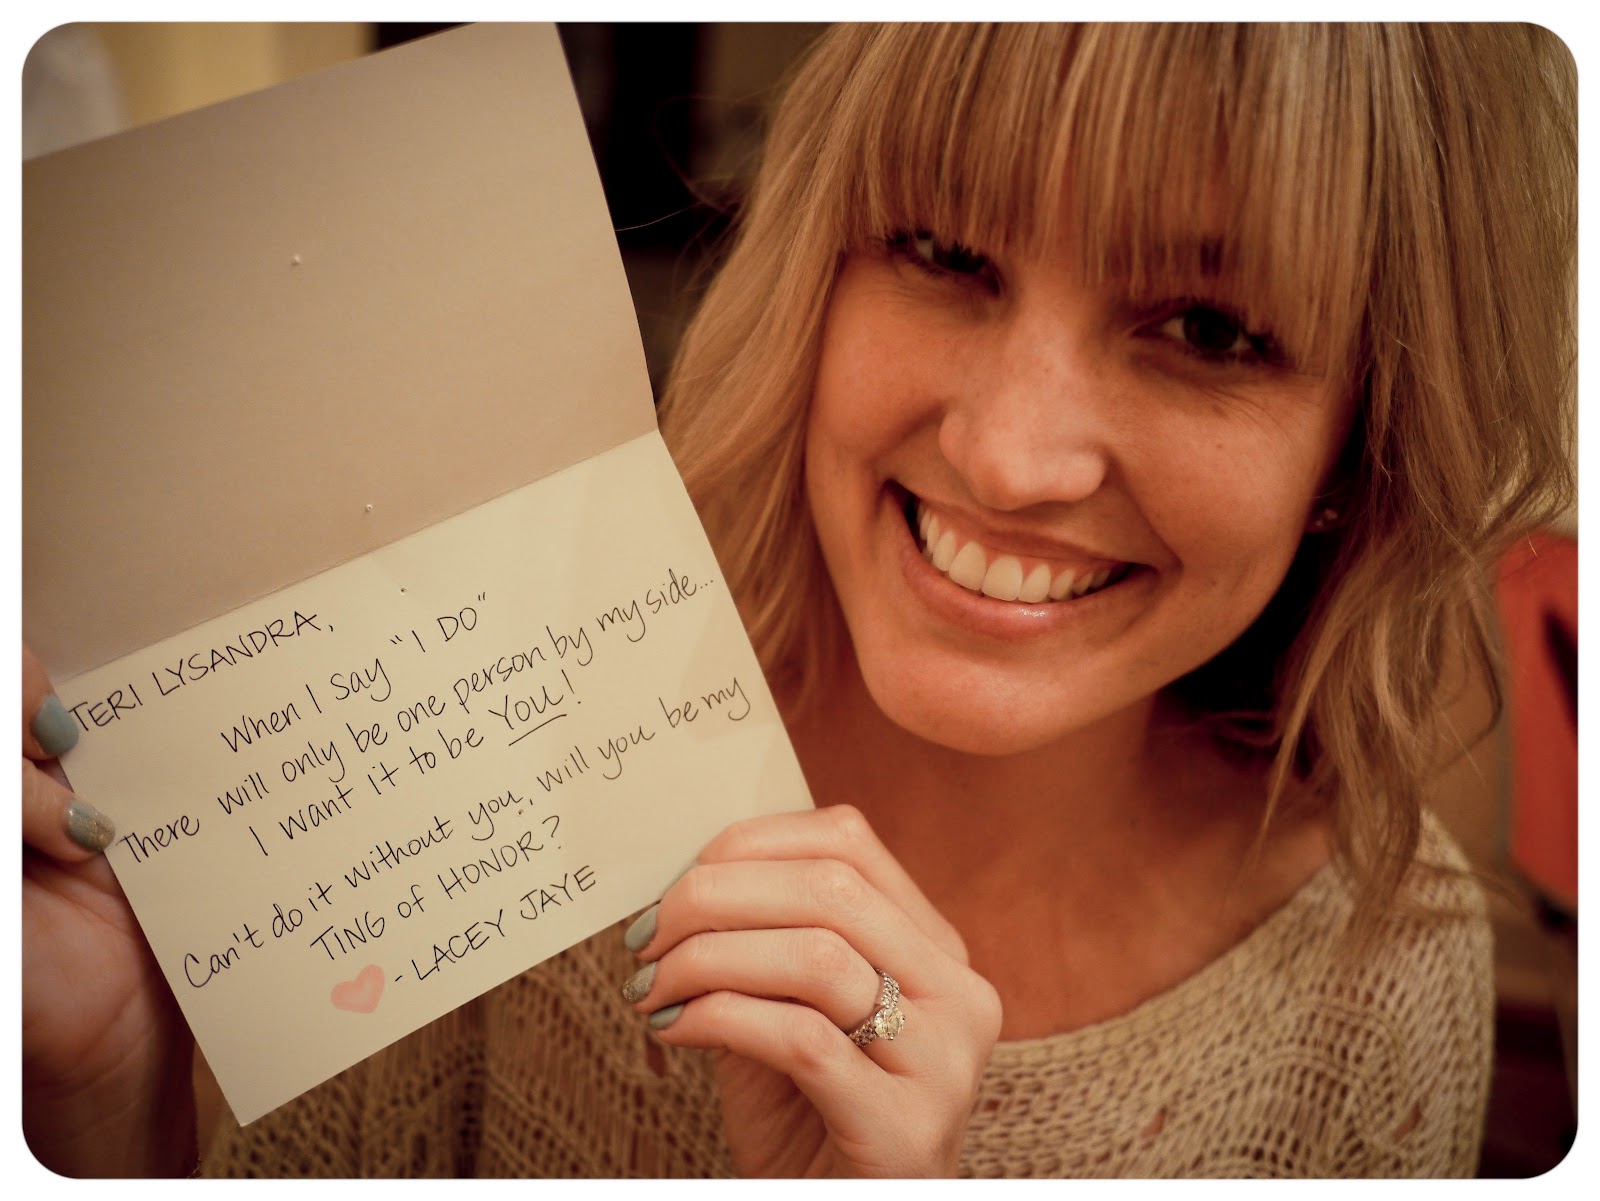 TERI LYSANDRA,
When I say "I DO"
There will only be one person by my side...
I want it to be YOU!
Can't do it without you, will you be my
TING of HONOR?
- LACEY JAYE